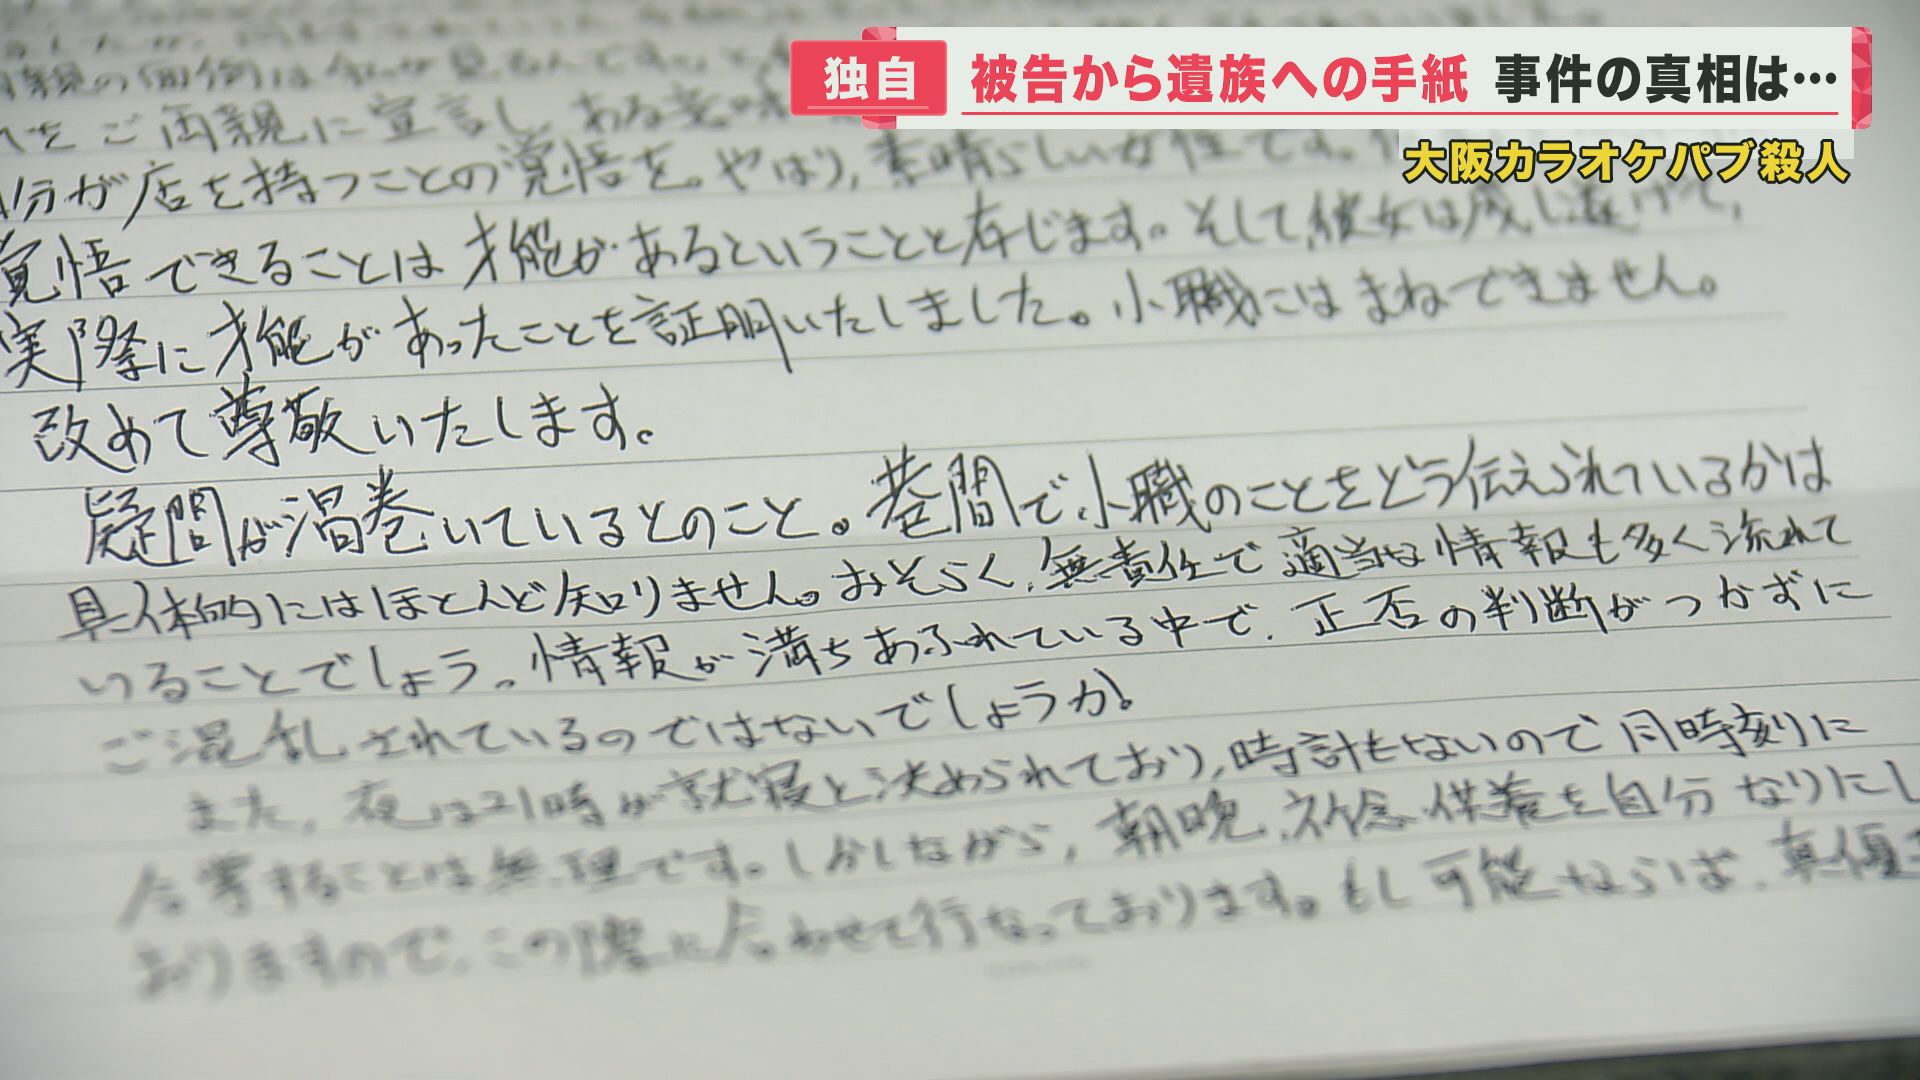 独自
被告から遺族への手紙 事件の真相は…
大阪カラオケパブ殺人
ご両親に宣言し、ある意
自分が店を持つことの覚悟を。やはり、素晴らしい女性です。
覚悟できることは才能があるということと存じます。そして、彼女は成し遂げて、
実際に才能があったことを証明いたしました。小職にはまねできません。
改めて尊敬いたします。
疑問が渦巻いているとのこと。巷間で小職のことをどう伝えられているかは
具体的にはほとんど知りません。おそらく、無責任で適当な情報も多く流れて
いることでしょう。情報が満ちあふれている中で、正否の判断がつかずに
ご混乱されているのではないでしょうか。
また、夜は21時が就寝と決められており、時計もないので同時刻に
合掌することは無理です。しかしながら、朝晩、祈念、供養を自分なりにし
おりますので、この際に合わせて行なっております。もし可能ならば、真優